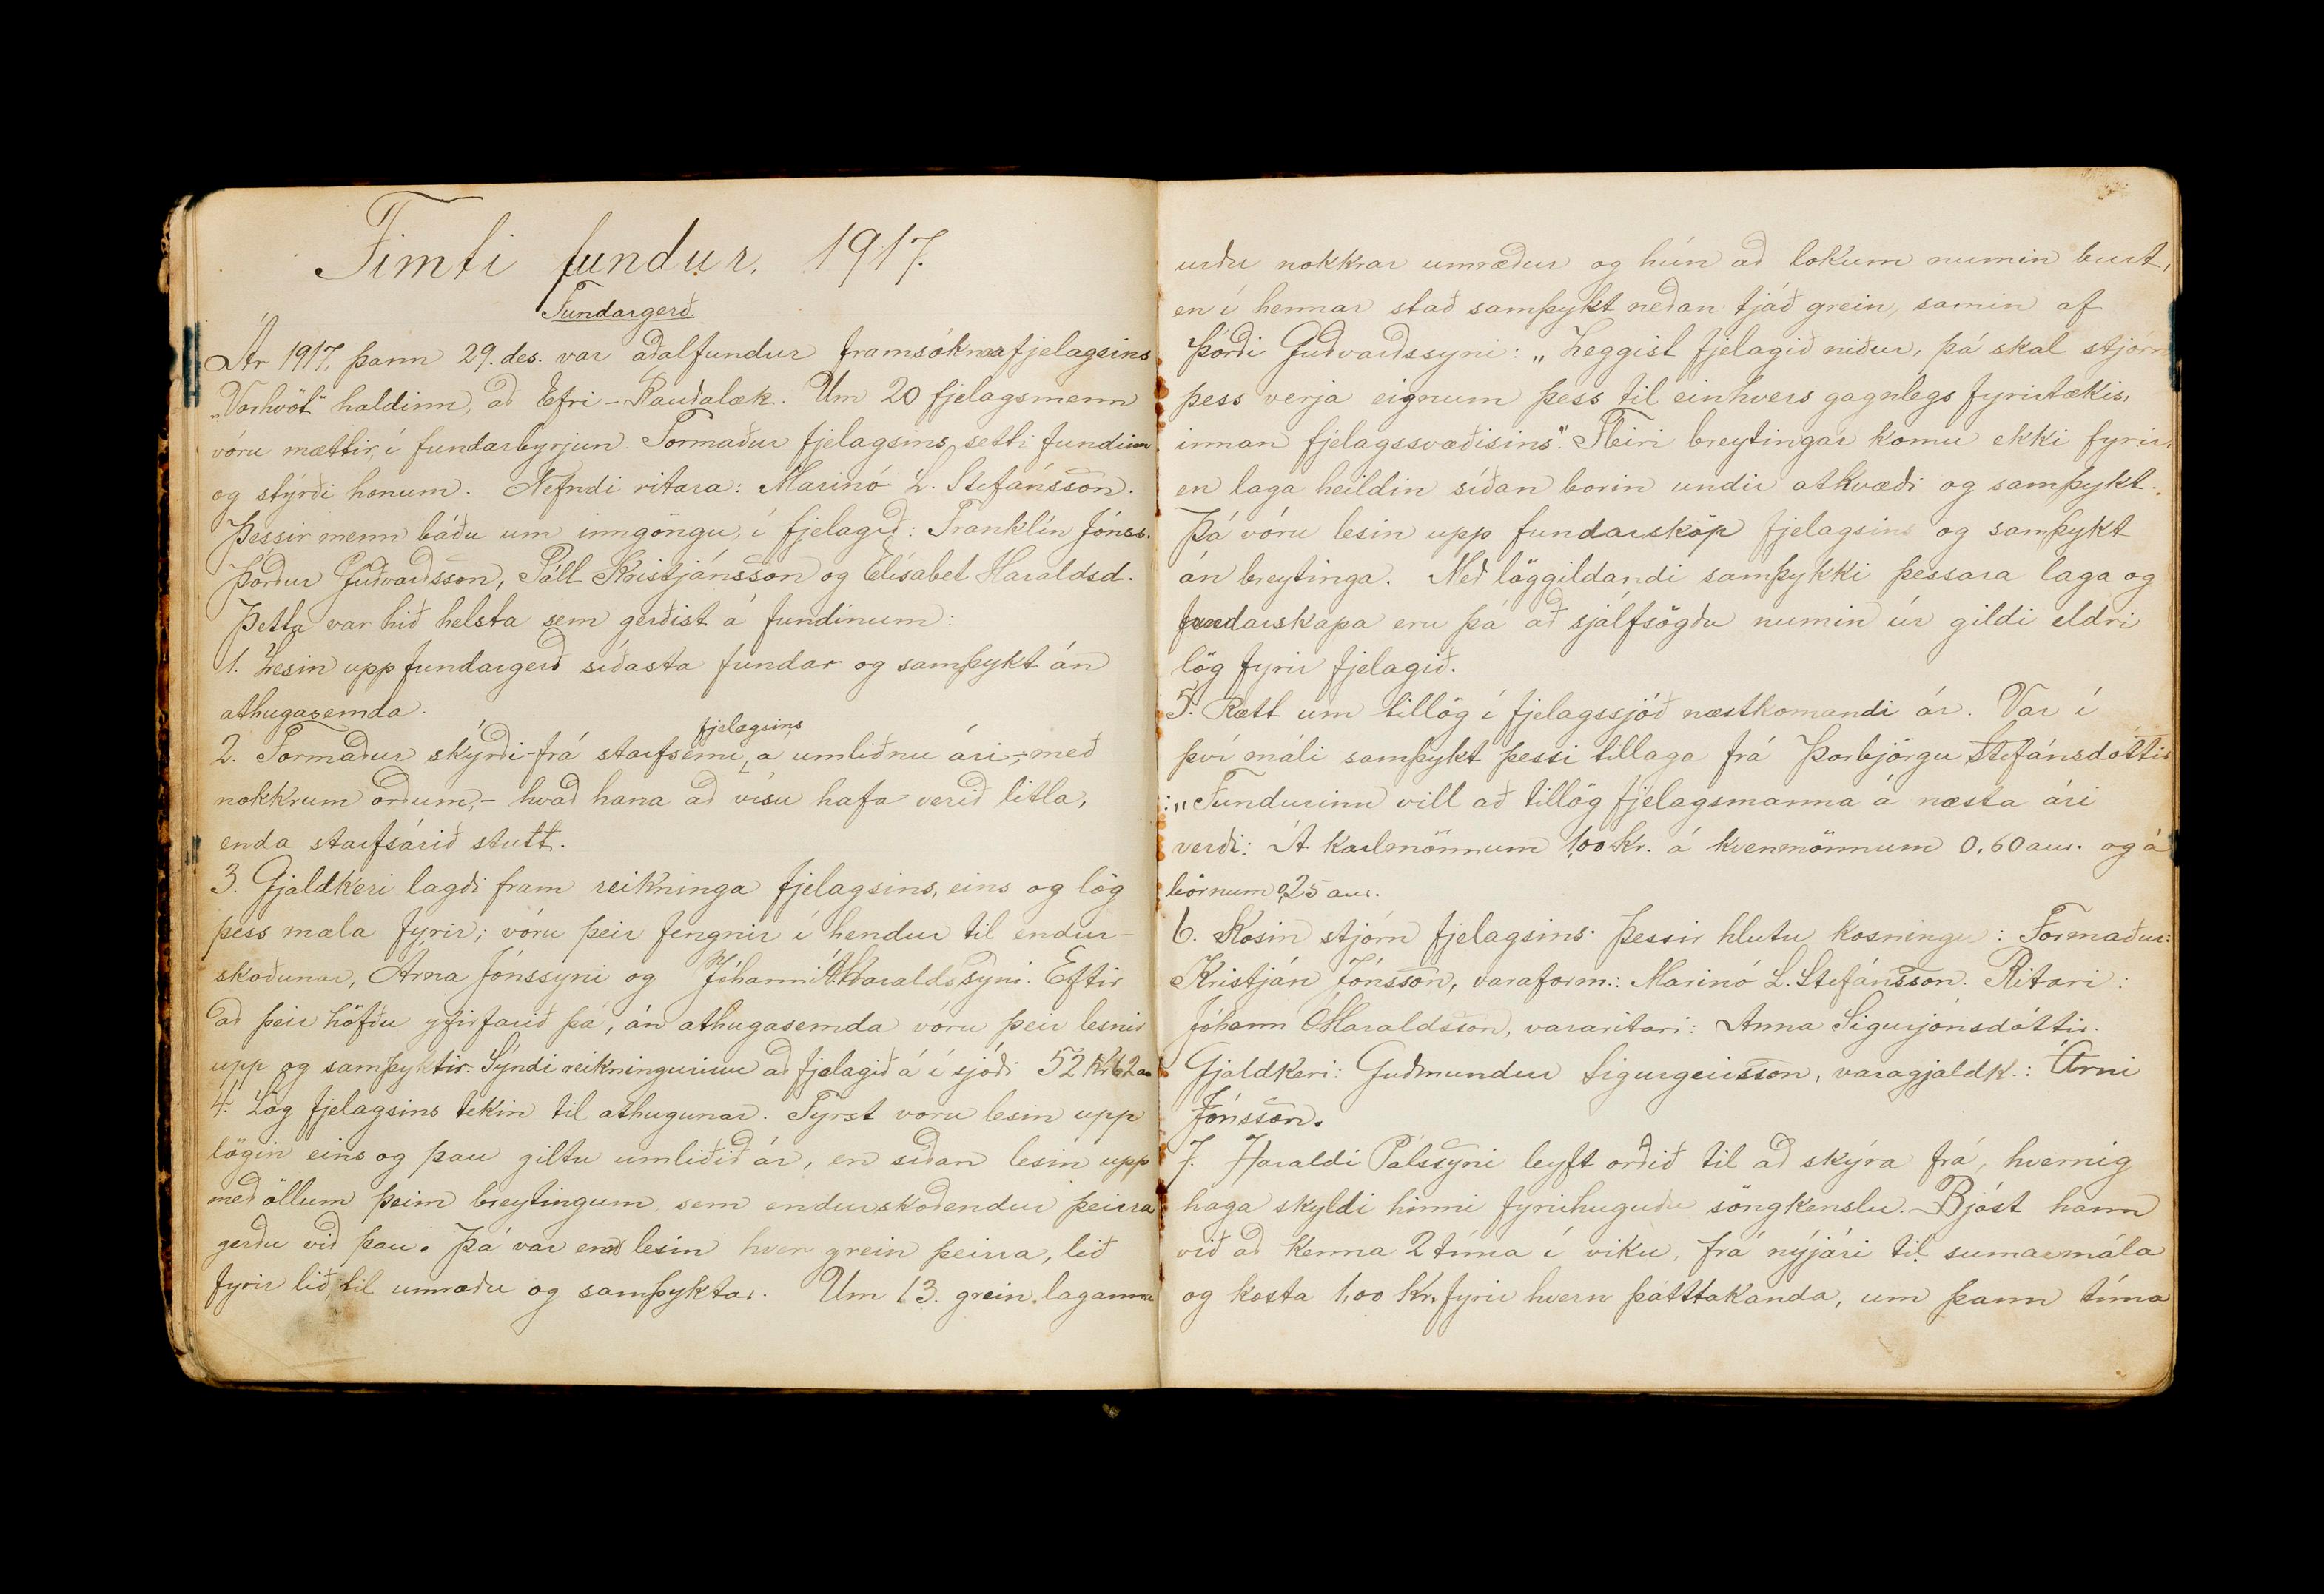 Fimti fundur. 1917.
Fundargerð.
Ár 1917, þann 29. des. var aðalfundur framsóknarfjelagsins
„Vorhvöt" haldinn, að Efri-Rauðalæk. Um 20 fjelagsmenn
vóru mættir, í fundarbyrjun. Formaður fjelagsins, setti fundinn
og stýrði honum. Nefndi ritara: Marinó L. Stefánsson.
Þessir menn báðu um inngöngu, í fjelagið: Franklín Jónss.
Þórður Guðvarðsson, Páll Kristjánsson og Elísabet Haraldsd.
Þetta var hið helsta sem gerðist á fundinum:
1. Lesin upp fundargerð síðasta fundar og samþykt án
athugasemda.
2. Formaður skýrði-frá starfsemi fjelagsins, á umliðnu ári,-með
nokkrum orðum,- hvað hana að vísu hafa verið litla,
enda starfsárið stutt.
3. Gjaldkeri lagði fram reikninga fjelagsins, eins og lög
þess mæla fyrir; vóru þeir fengnir í hendur til endur-
skoðunar, Árna Jónssyni og Jóhanni Ó. Haraldssyni. Eftir
að þeir höfðu yfirfarið þá, án athugasemda vóru þeir lesnir
upp og samþyktir. Sýndi reikningurinn að fjelagið á í sjóði 52 kr 62 au
4. Lög fjelagsins tekin til athugunar. Fyrst voru lesin upp
lögin eins og þau giltu umliðið ár, en síðan lesin upp
með öllum þeim breytingum, sem endurskoðendur þeirra
gerðu við þau. Þá var lesin hver grein þeirra, lið
fyrir lið, til umræðu og samþyktar. Um 13. grein laganna
urðu nokkrar umræður og hún að lokum numin burt,
en í hennar stað samþykt neðan tjáð grein, samin af
Þórði Guðvarðssyni: „Leggist fjelagið niður, þá skal stjórn
þess verja eignum þess til einhvers gagnlegs fyrirtækis,
innan fjelagssvæðisins". Fleiri breytingar komu ekki fyrir,
en laga heildin síðan borin undir atkvæði og samþykt.
Þá vóru lesin upp fundarsköp fjelagsins og samþykt
án breytinga. Með löggildandi samþykki þessara laga og
fundarskapa eru þá að sjálfsögðu numin úr gildi eldri
lög fyrir fjelagið.
5. Rætt um tillög í fjelagssjóð næstkomandi ár. Var í
því máli samþykt þessi tillaga frá Þorbjörgu Stefánsdóttir
:„Fundurinn vill að tillög fjelagsmanna á næsta ári
verði: Á karlmönnum 1,00 kr. á kvenmönnum 0,60 aur. og á
börnum 0,25 aur.
6. Kosin stjórn fjelagsins. Þessir hlutu kosningu: Formaður:
Kristján Jónsson, varaform.: Marinó L. Stefánsson. Ritari:
Jóhann Ó Haraldsson, vararitari: Anna Sigurjónsdóttir.
Gjaldkeri: Guðmundur Sigurgeirsson, varagjaldk.: Árni
Jónsson.
7. Haraldi Pálssyni leyft orðið til að skýra frá, hvernig
haga skyldi hinni fyrirhuguðu söngkenslu. Bjóst hann
við að kenna 2 tíma í viku, frá nýjári til sumarmála
og kosta 1,00 kr. fyrir hvern þátttakanda, um þann tíma